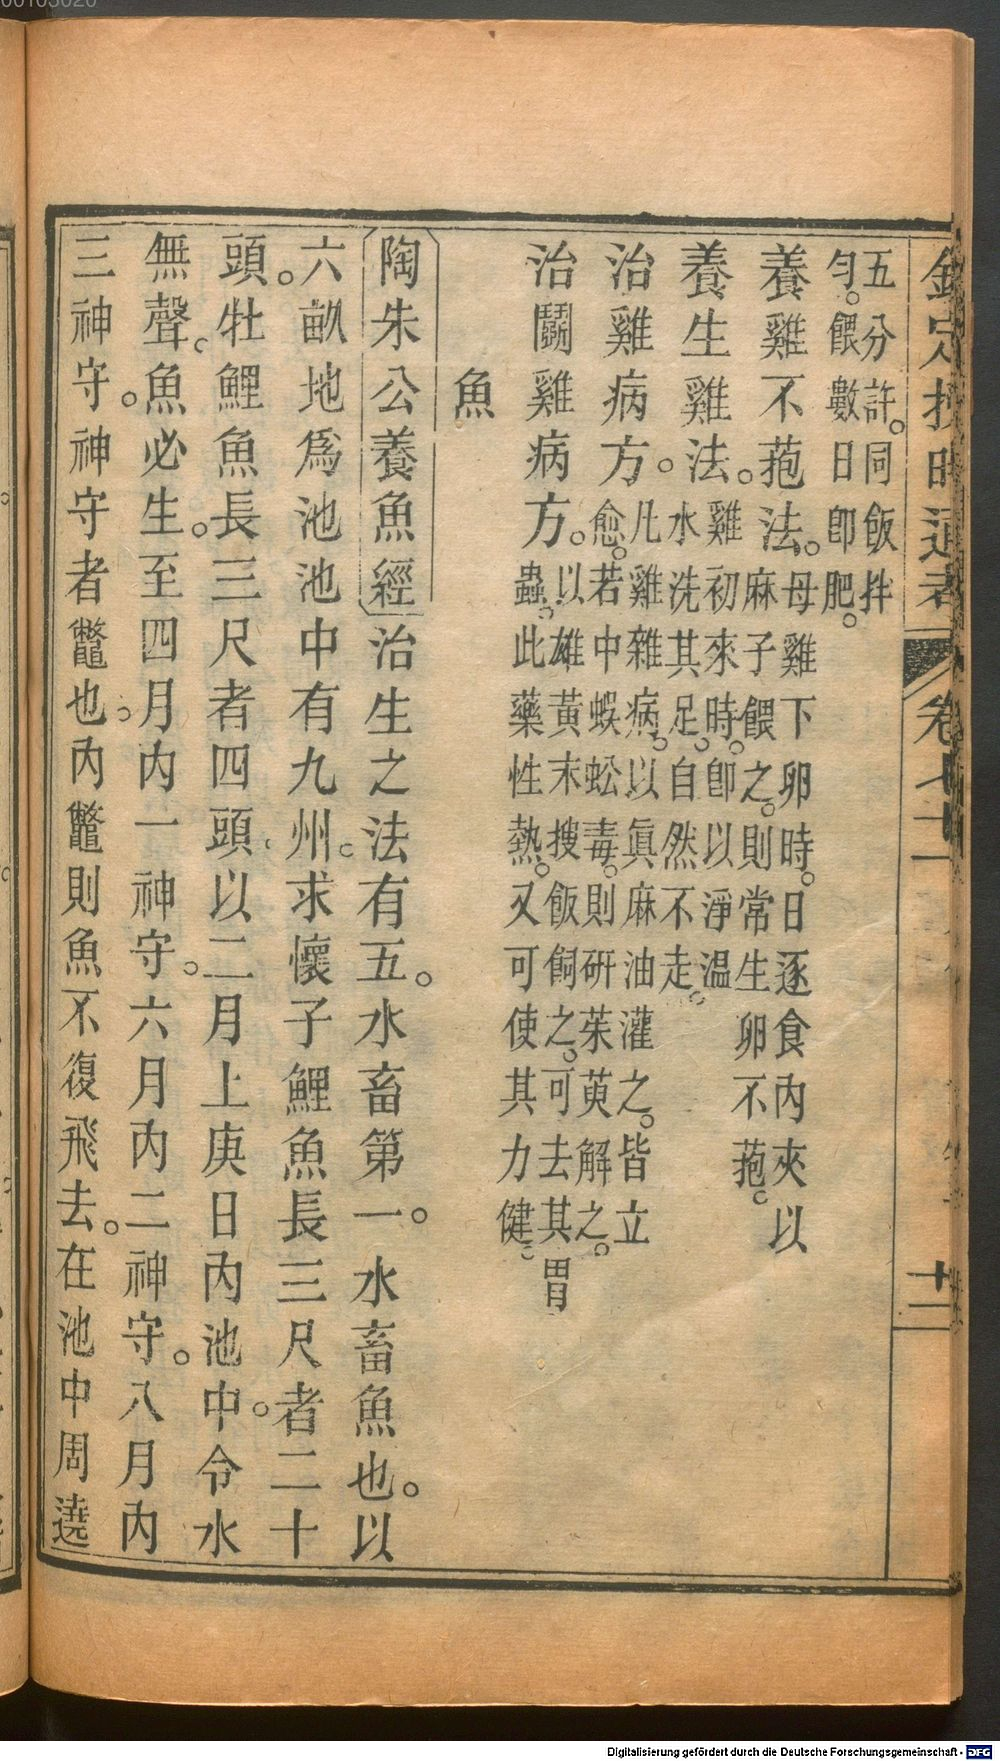 00103020
欽定授時通考 卷七十二 十二
五分許。同飯拌
勻。餵數日卽肥。
養雞不菢法。母雞下卵時。日逐食內夾以
麻子餵之。則常生卵不菢。
養生雞法。雞初來時。卽以淨溫
水洗其足。自然不走。
治雞病方。凡雞雜病。以眞麻油灌之。皆立
愈。若中蜈蚣毒。則硏茱萸解之。
治鬭雞病方。以雄黃末搜飯飼之。可去其胃
蟲。此藥性熱。又可使其力健。
魚
陶朱公養魚經治生之法有五。水畜第一。水畜魚也。以
六畝地爲池池中有九州。求懷子鯉魚長三尺者二十
頭。牡鯉魚長三尺者四頭。以二月上庚日內池中。令水
無聲。魚必生。至四月內一神守。六月內二神守。八月內
三神守。神守者鼈也。內鼈則魚不復飛去。在池中周遶
Digitalisierung gefördert durch die Deutsche Forschungsgemeinschaft - DFG